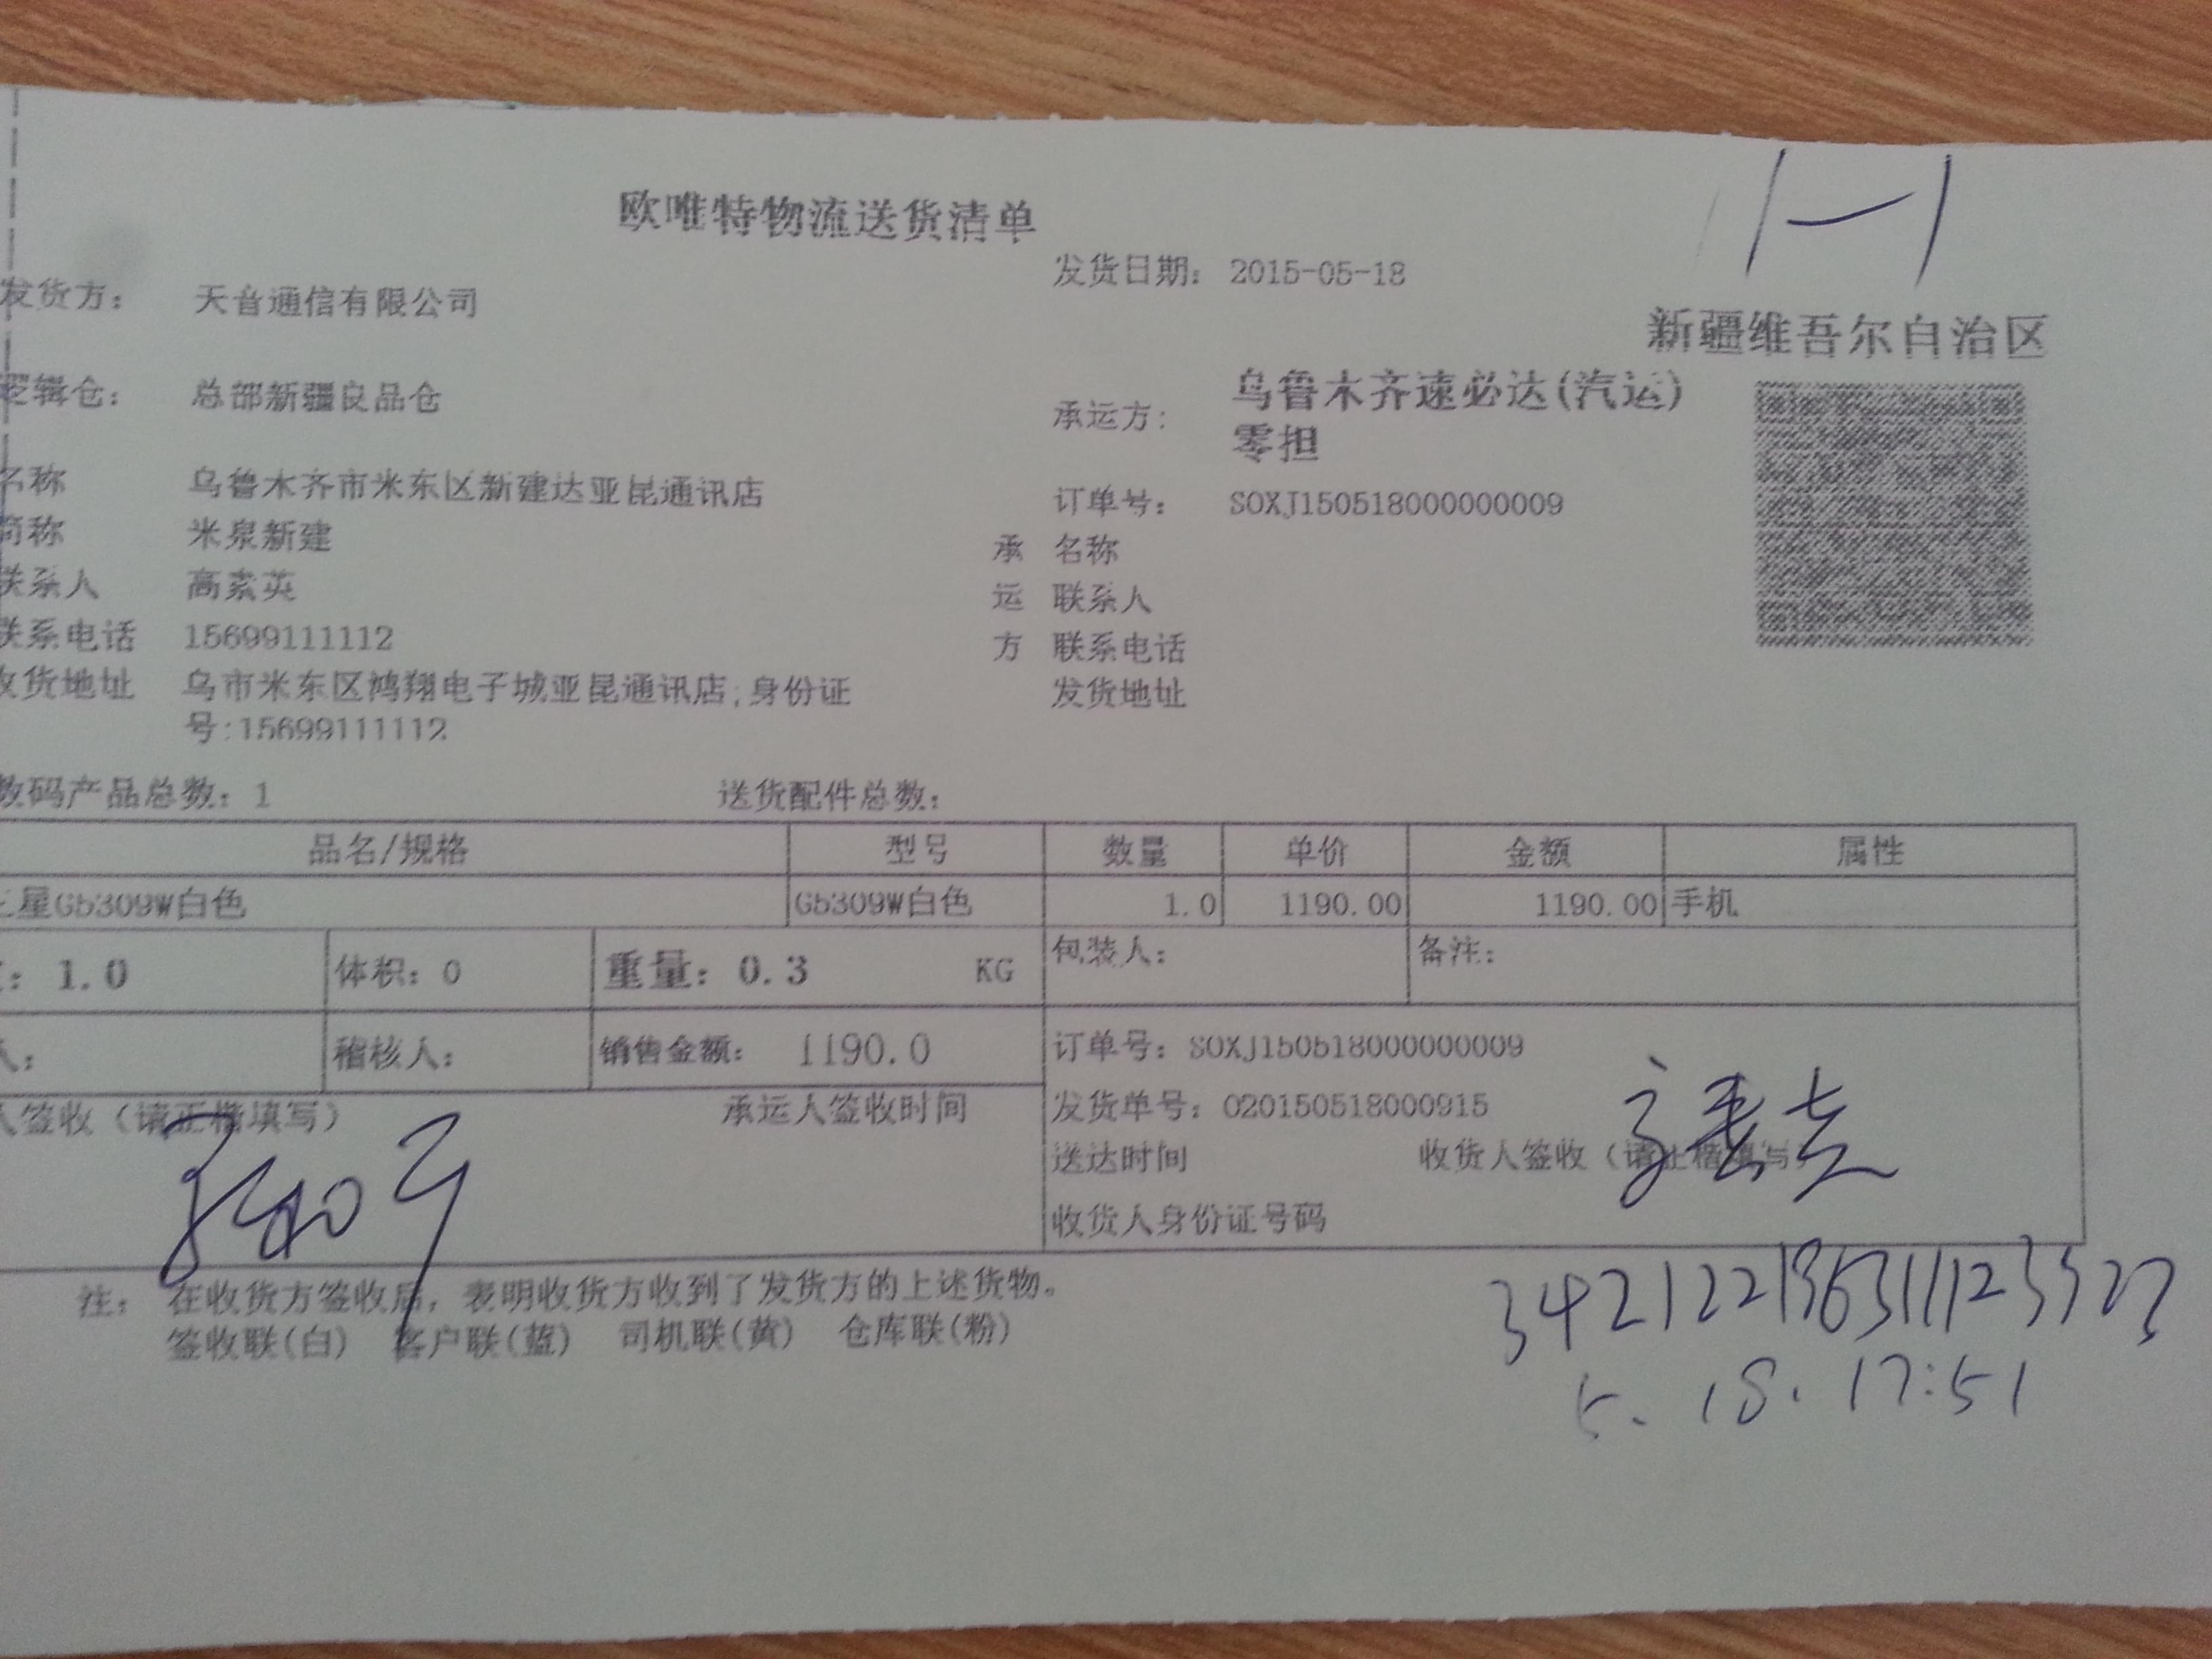 欧唯特物流送货清单
1-1
发货日期： 2015-05-18
发货方： 天音通信有限公司
新疆维吾尔自治区
逻辑仓： 总部新疆良品仓
承运方： 乌鲁木齐速必达(汽运)
零担
名称 乌鲁木齐市米东区新建达亚昆通讯店
订单号： SOXJ150518000000009
简称 米泉新建
承 名称
联系人 高素英
运 联系人
联系电话 15699111112
方 联系电话
收货地址 乌市米东区鸿翔电子城亚昆通讯店;身份证
号:15699111112
发货地址
数码产品总数：1 送货配件总数：
品名/规格 型号 数量 单价 金额 属性
三星G5309W白色 G5309W白色 1.0 1190.00 1190.00 手机
：1.0 体积：0 重量：0.3 KG 包装人： 备注：
人： 稽核人： 销售金额： 1190.0 订单号：SOXJ150518000000009
人签收（请正楷填写） 承运人签收时间
发货单号：020150518000915
送达时间 收货人签收（请正楷填写）
收货人身份证号码
注： 在收货方签收后，表明收货方收到了发货方的上述货物。
签收联(白) 客户联(蓝) 司机联(黄) 仓库联(粉)
5.18.17:51